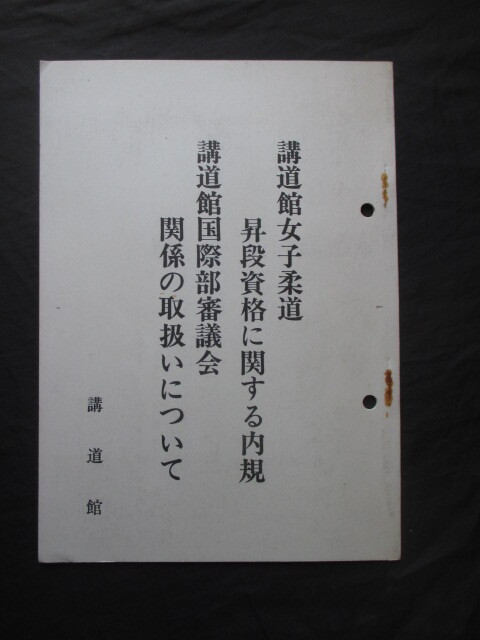 講道館女子柔道
昇段資格に関する内規
講道館国際部審議会
関係の取扱いについて
講道館